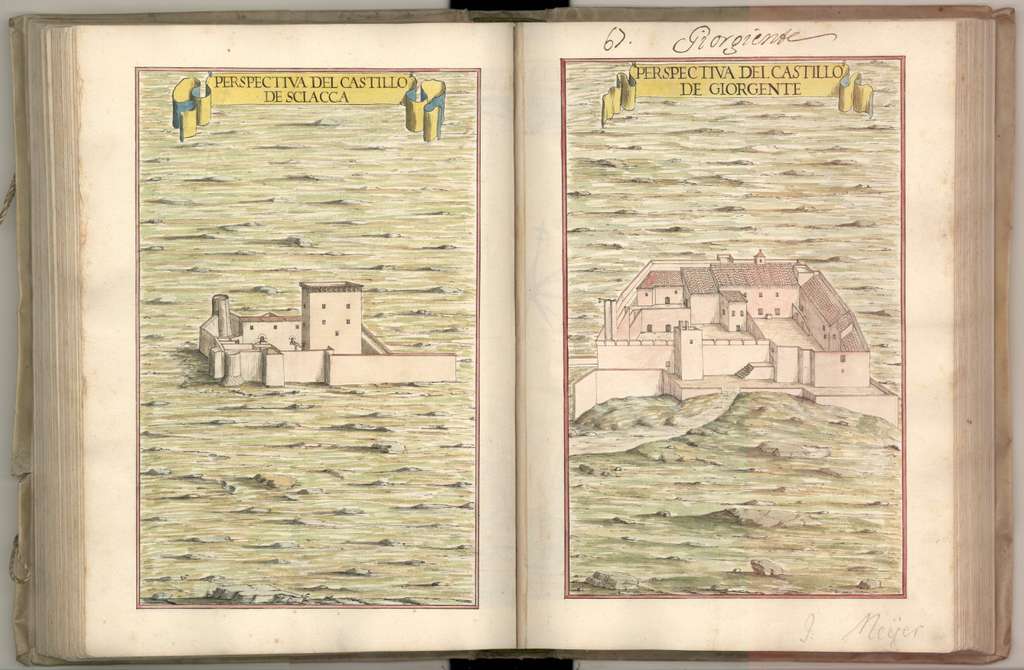 PERSPECTIVA DEL CASTILLO
DE SCIACCA
67. Giorgiente
PERSPECTIVA DEL CASTILLO
DE GIORGENTE
J. Meÿer